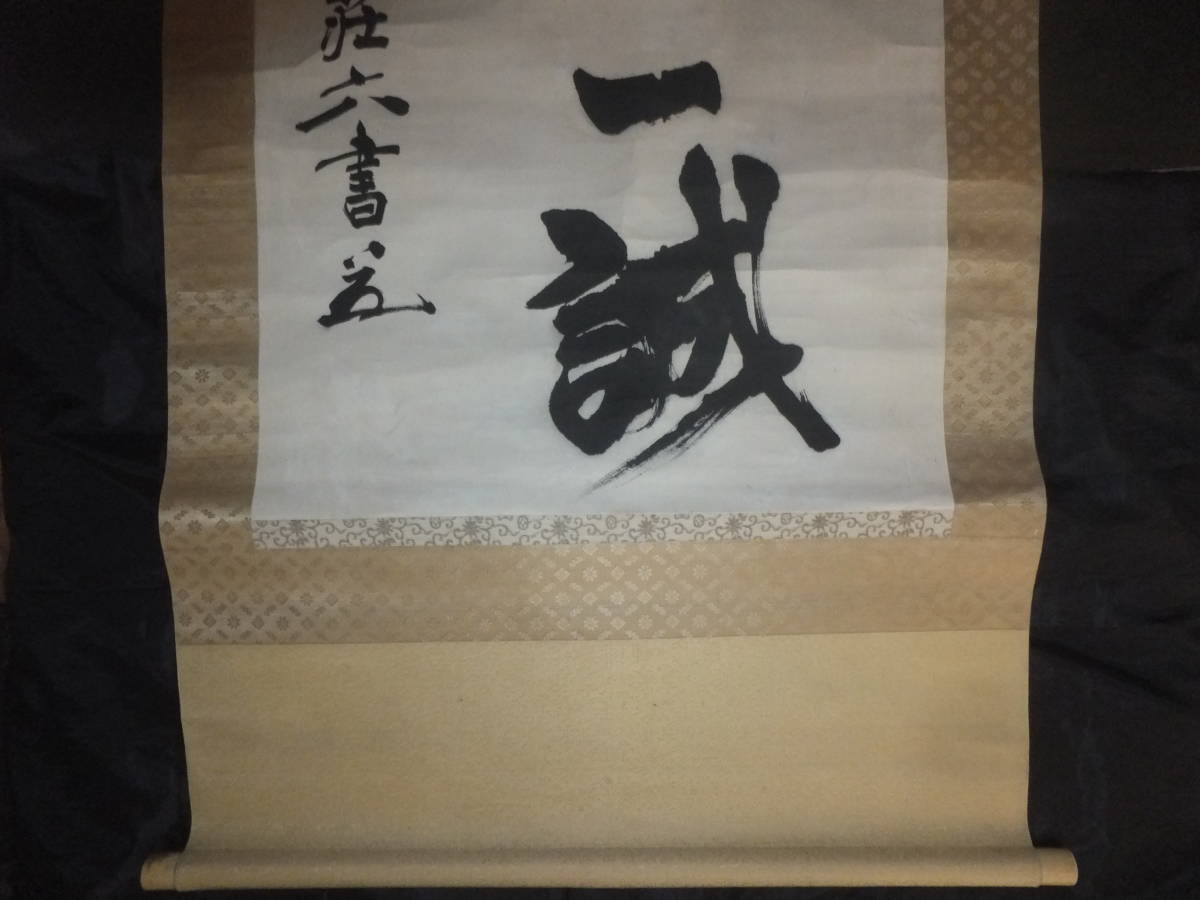 一誠
荘六書